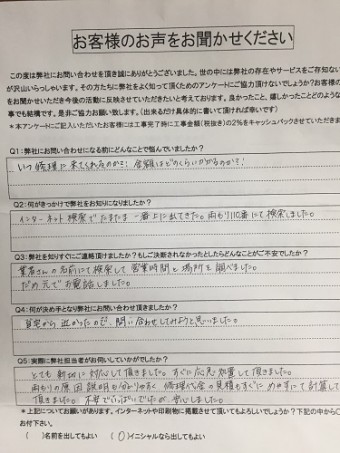 お客様のお声をお聞かせください
この度は弊社にお問い合わせを頂き誠にありがとうございました。世の中には弊社の存在やサービスをご存知ない
が沢山いらっしゃいます。その方たちに弊社をよく知って頂くためのアンケートにご協力頂けないでしょうか？お客様の
をお聞かせいただき今後の活動に反映させていただきたいと考えております。良かったこと、嬉しかったことどのような
事でも結構です。是非ご協力お願い致します。（出来るだけ具体的に書いて頂ければ幸いです）
＊本アンケートにご記入いただいたお客様には工事完了時に工事金額（税抜き）の2％をキャッシュバックさせていただきま
Q1：弊社にお問い合わせになる前にどんなことで悩んでいましたか？
いつ修理に来てくれるのか？ 金額はどのくらいかかるのか？
Q2：何がきっかけで弊社をお知りになりましたか？
インターネット検索でたまたま一番上に出てきた。雨もり110番にて検索しました。
Q3：弊社を知りすぐにご連絡頂けましたか？もしご決断されなかったとしたらどんなことがご不安でしたか？
業者さんの名前にて検索して営業時間と場所を調べました。
だめ元でお電話しました。
Q4：何が決め手となり弊社にお問い合わせ頂きましたか？
自宅から近かったので、問い合わせしてみようと思いました。
Q5：実際に弊社担当者がお伺いしていかがでしたか？
とても親切に対応して頂きました。すぐに応急処置して頂きました。
雨もりの原因説明も分かりやすく修理代金の見積もすぐに 計算して
頂きました。不安でいっぱいでしたが、安心しました。
＊上記についてお願いがあります。インターネットや印刷物に掲載させて頂いてもよろしいでしょうか？下記の中から〇
お付下さい。
（ ）名前を出してもよい （〇）イニシャルなら出してもよい